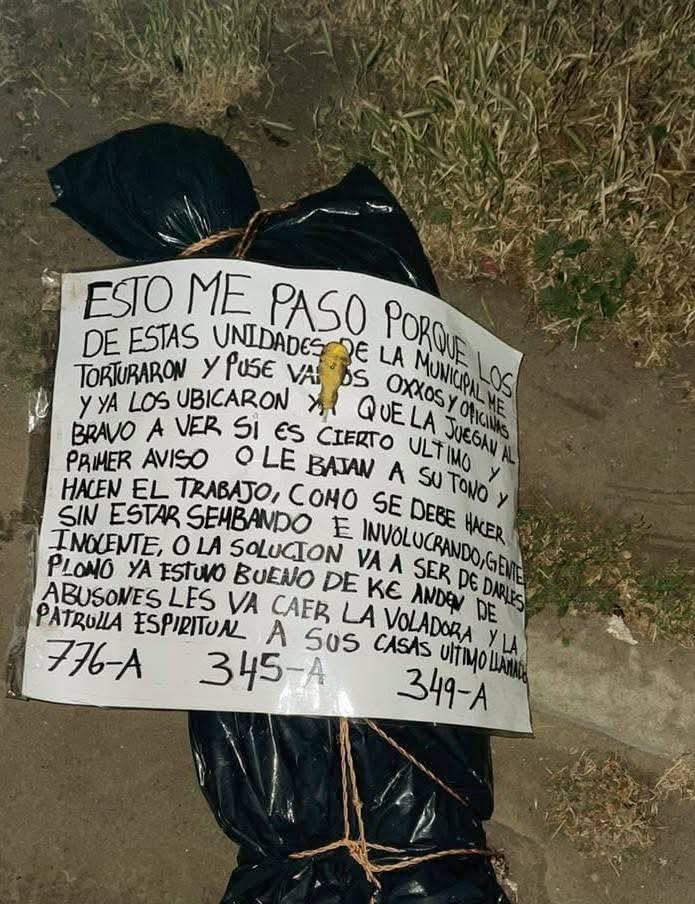 ESTO ME PASO PORQUE LOS
DE ESTAS UNIDADES DE LA MUNICIPAL ME
TORTURARON Y PUSE VARIOS OXXOS Y OFICINAS
Y YA LOS UBICARON Y QUE LA JUEGAN AL
BRAVO A VER SI ES CIERTO ULTIMO Y
PRIMER AVISO O LE BAJAN A SU TONO Y
HACEN EL TRABAJO, COMO SE DEBE HACER
SIN ESTAR SEMBANDO E INVOLUCRANDO, GENTE
INOCENTE, O LA SOLUCION VA A SER DE DARLES
PLOMO YA ESTUVO BUENO DE KE ANDEN DE
ABUSONES LES VA CAER LA VOLADORA Y LA
PATRULLA ESPIRITUAL A SUS CASAS ULTIMO LLAMADO
776-A 345-A 349-A